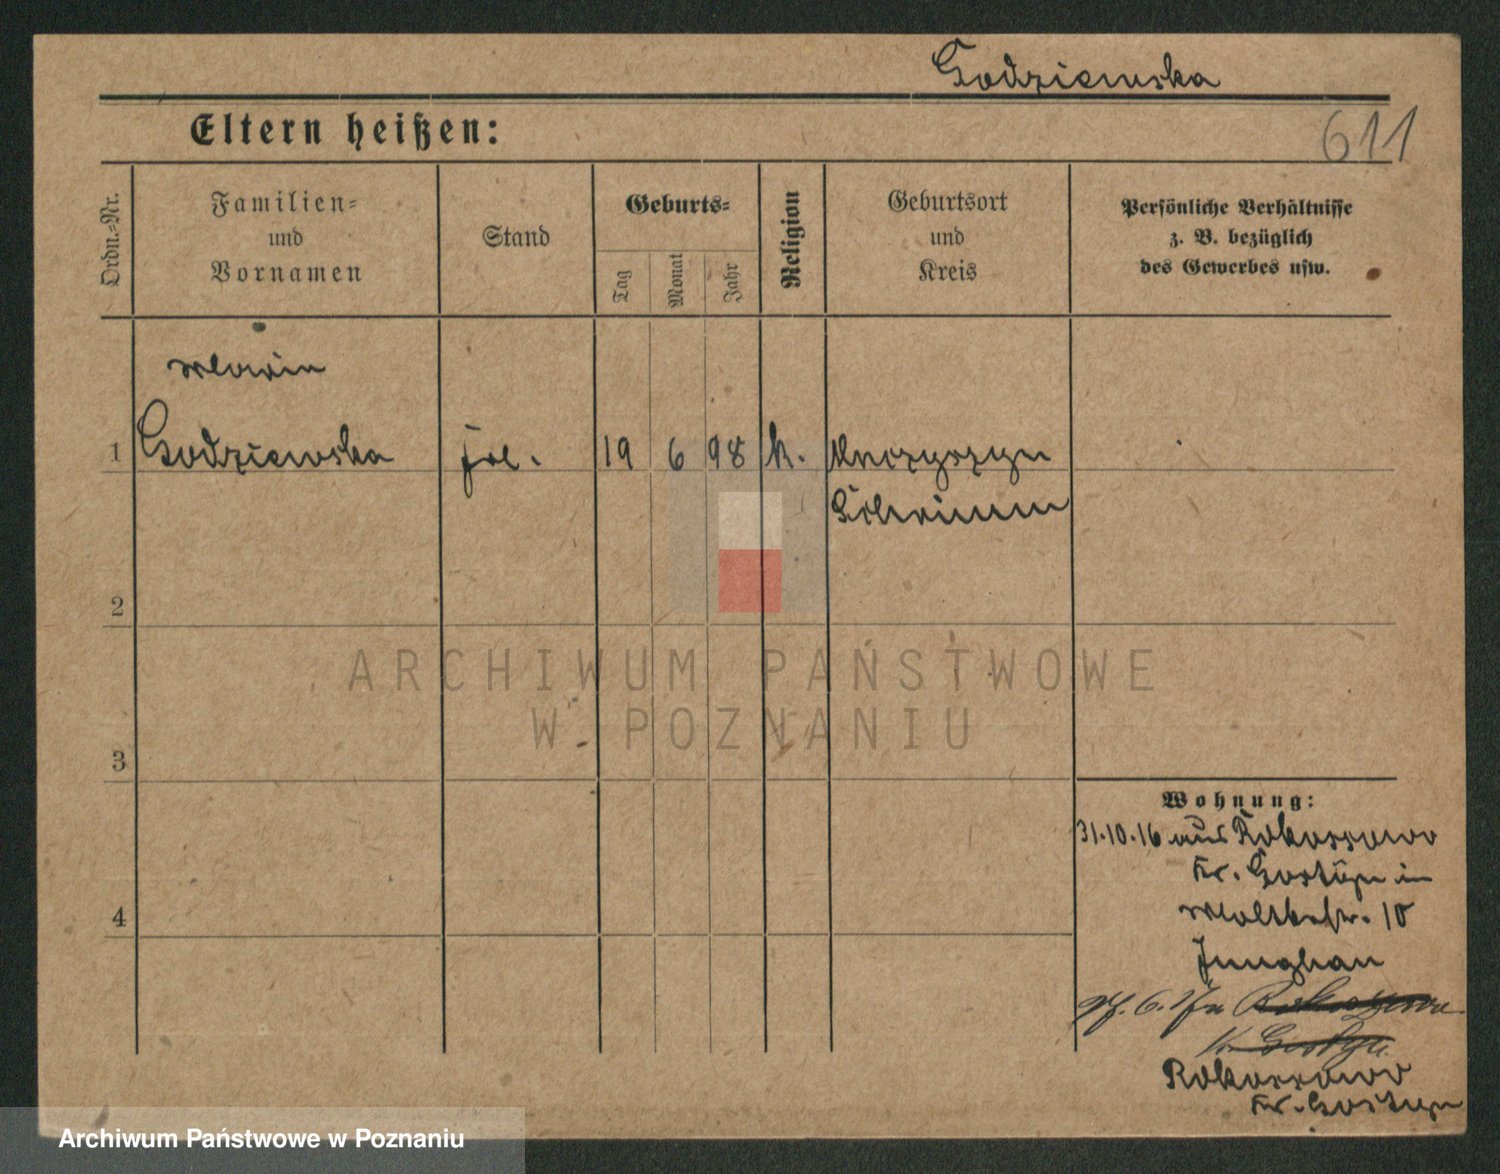 Godziewska
Eltern heißen:
611
Ordn.-Nr.
Familien-
und
Vornamen
Stand
Geburts-
Tag
Monat
Jahr
Religion
Geburtsort
und
Kreis
Persönliche Verhältnisse
z. B. bezüglich
des Gewerbes usw.
Maria
1 Godziewska frl. 19 6 98 k.
Schrimm
2
3
4
ARCHIWUM PAŃSTWOWE
W POZNANIU
Wohnung:
31.10.16 aus Rokossowo
Kr. Gostyn in
Moltkestr. 10
Junghan
Rokossowo
Kr. Gostyn
Kr. Gostyn
Archiwum Państwowe w Poznaniu